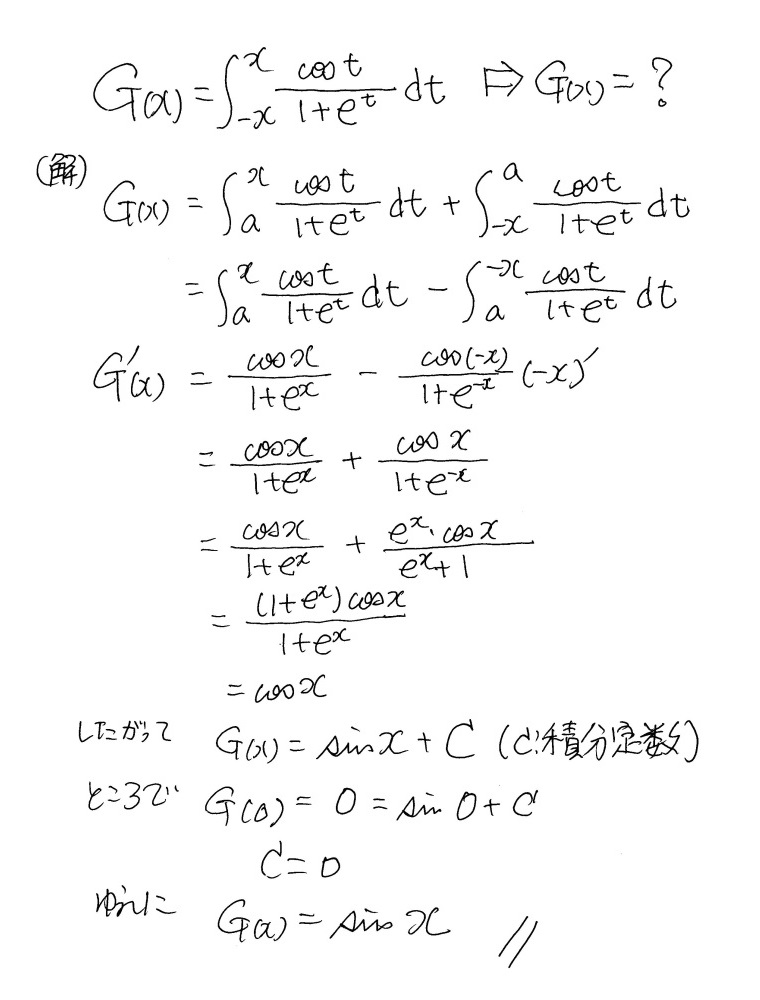 G(x) = ∫_{-x}^{x} \frac{cos t}{1+e^t} dt ⇒ G(x) = ?
(解) G(x) = ∫_{a}^{x} \frac{cos t}{1+e^t} dt + ∫_{-x}^{a} \frac{cos t}{1+e^t} dt
= ∫_{a}^{x} \frac{cos t}{1+e^t} dt - ∫_{a}^{-x} \frac{cos t}{1+e^t} dt
G'(x) = \frac{cos x}{1+e^x} - \frac{cos(-x)}{1+e^{-x}} (-x)'
= \frac{cos x}{1+e^x} + \frac{cos x}{1+e^{-x}}
= \frac{cos x}{1+e^x} + \frac{e^x・cos x}{e^x+1}
= \frac{(1+e^x) cos x}{1+e^x}
= cos x
したがって G(x) = sin x + C (C:積分定数)
ところで G(0) = 0 = sin 0 + C
C = 0
ゆえに G(x) = sin x //